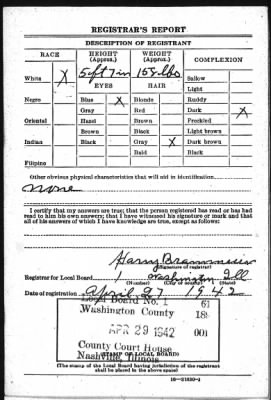 REGISTRAR'S REPORT
DESCRIPTION OF REGISTRANT
RACE HEIGHT (Approx.) WEIGHT (Approx.) COMPLEXION
White X 5 ft 7 in 158 lbs Sallow
EYES HAIR Light
Negro Blue X Blonde Ruddy
Gray Red Dark X
Oriental Hazel Brown Freckled
Brown Black Light brown
Indian Black Gray X Dark brown
Bald Black
Filipino
Other obvious physical characteristics that will aid in identification
None
I certify that my answers are true; that the person registered has read or has had
read to him his own answers; that I have witnessed his signature or mark and that
all of his answers of which I have knowledge are true, except as follows:
Harry
(Signature of registrar)
Registrar for Local Board 1 Washington Ill
(Number) (City or county) (State)
Date of registration April 27 1942
Local Board No. 1 61
Washington County 189
APR 29 1942 001
County Court House
Nashville, Illinois
(STAMP OF LOCAL BOARD)
(The stamp of the Local Board having jurisdiction of the registrant
shall be placed in the above space)